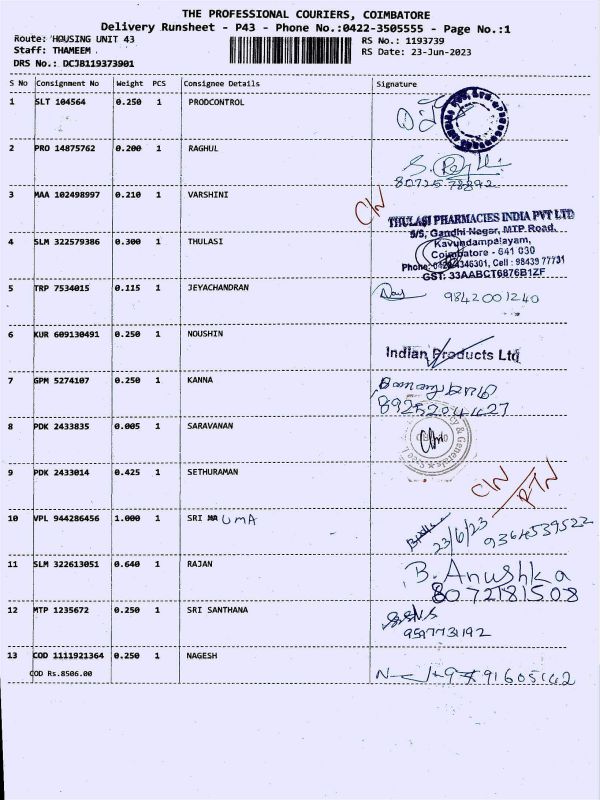 THE PROFESSIONAL COURIERS, COIMBATORE
Delivery Runsheet - P43 - Phone No.:0422-3505555 - Page No.:1
Route: HOUSING UNIT 43 RS No.: 1193739
Staff: THAMEEM . RS Date: 23-Jun-2023
DRS No.: DCJB119373901
S No Consignment No Weight PCS Consignee Details Signature
1 SLT 104564 0.250 1 PRODCONTROL
2 PRO 14875762 0.200 1 RAGHUL
8072578892
3 MAA 102498997 0.210 1 VARSHINI
THULASI PHARMACIES INDIA PVT LTD
9/5, Gandhi Nagar, MTP Road,
4 SLM 322579386 0.300 1 THULASI Kavundampalayam,
Coimbatore - 641 030
Phone: 0422-4346301, Cell : 98439 77731
GST: 33AABCT6876B1ZF
5 TRP 7534015 0.115 1 JEYACHANDRAN 9842001240
6 KUR 609130491 0.250 1 NOUSHIN
Indian Products Ltd
7 GPM 5274107 0.250 1 KANNA
8925204427
8 PDK 2433835 0.005 1 SARAVANAN
9 PDK 2433014 0.425 1 SETHURAMAN
10 VPL 944286456 1.000 1 SRI UMA 23/6/23 9364539522
11 SLM 322613051 0.640 1 RAJAN B. Anushka
8072181508
12 MTP 1235672 0.250 1 SRI SANTHANA
9597731192
13 COD 1111921364 0.250 1 NAGESH
COD Rs.8506.00